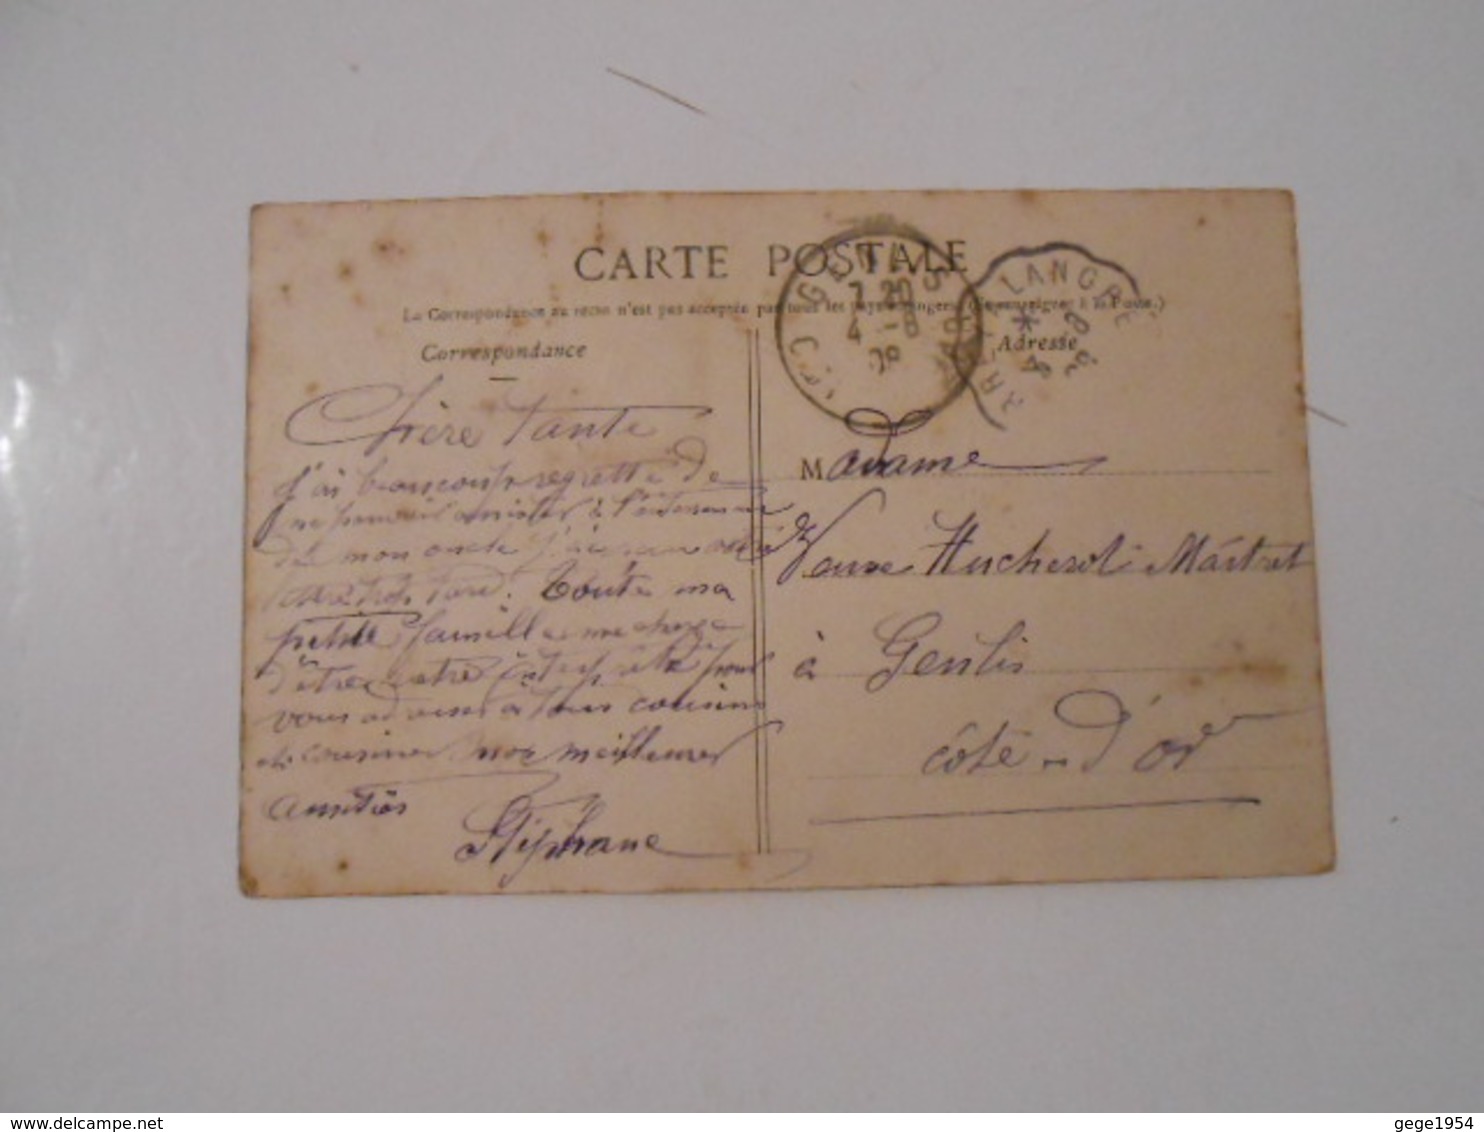 CARTE POSTALE
La Correspondance au recto n'est pas acceptée par tous les pays étrangers (Se renseigner à la Poste.)
Correspondance
Adresse
GENLIS
7 20
4 - 8
08
LANGRE
4 8
08
Chère Tante
J'ai beaucoup regretté de
ne pouvoir assister à l'enterrement
de mon oncle J'
trop tard. Toute ma
petite famille me charge
d'être interprète pour
vous adresser à tous cousins
et cousines nos meilleures
amitiés
Stéphane
Madame
Veuve Hucherot Maitret
à Genlis
côte-d'or
delcampe.net
gege1954